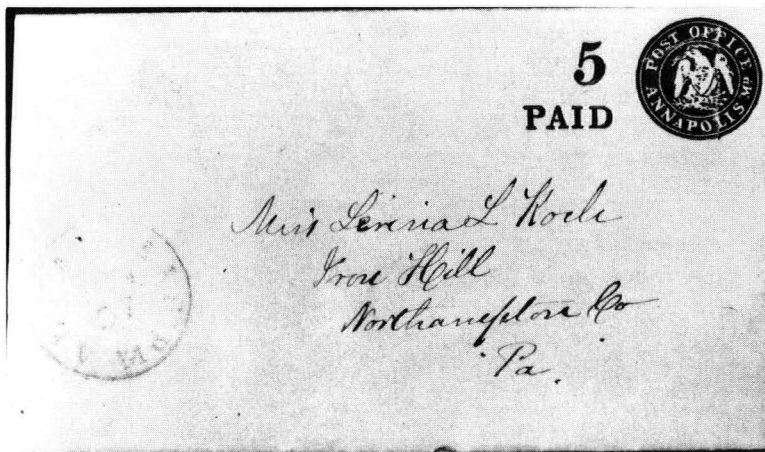 5
PAID
POST OFFICE
ANNAPOLIS MD
Miss L
Iron Hill
Northampton Co
Pa.